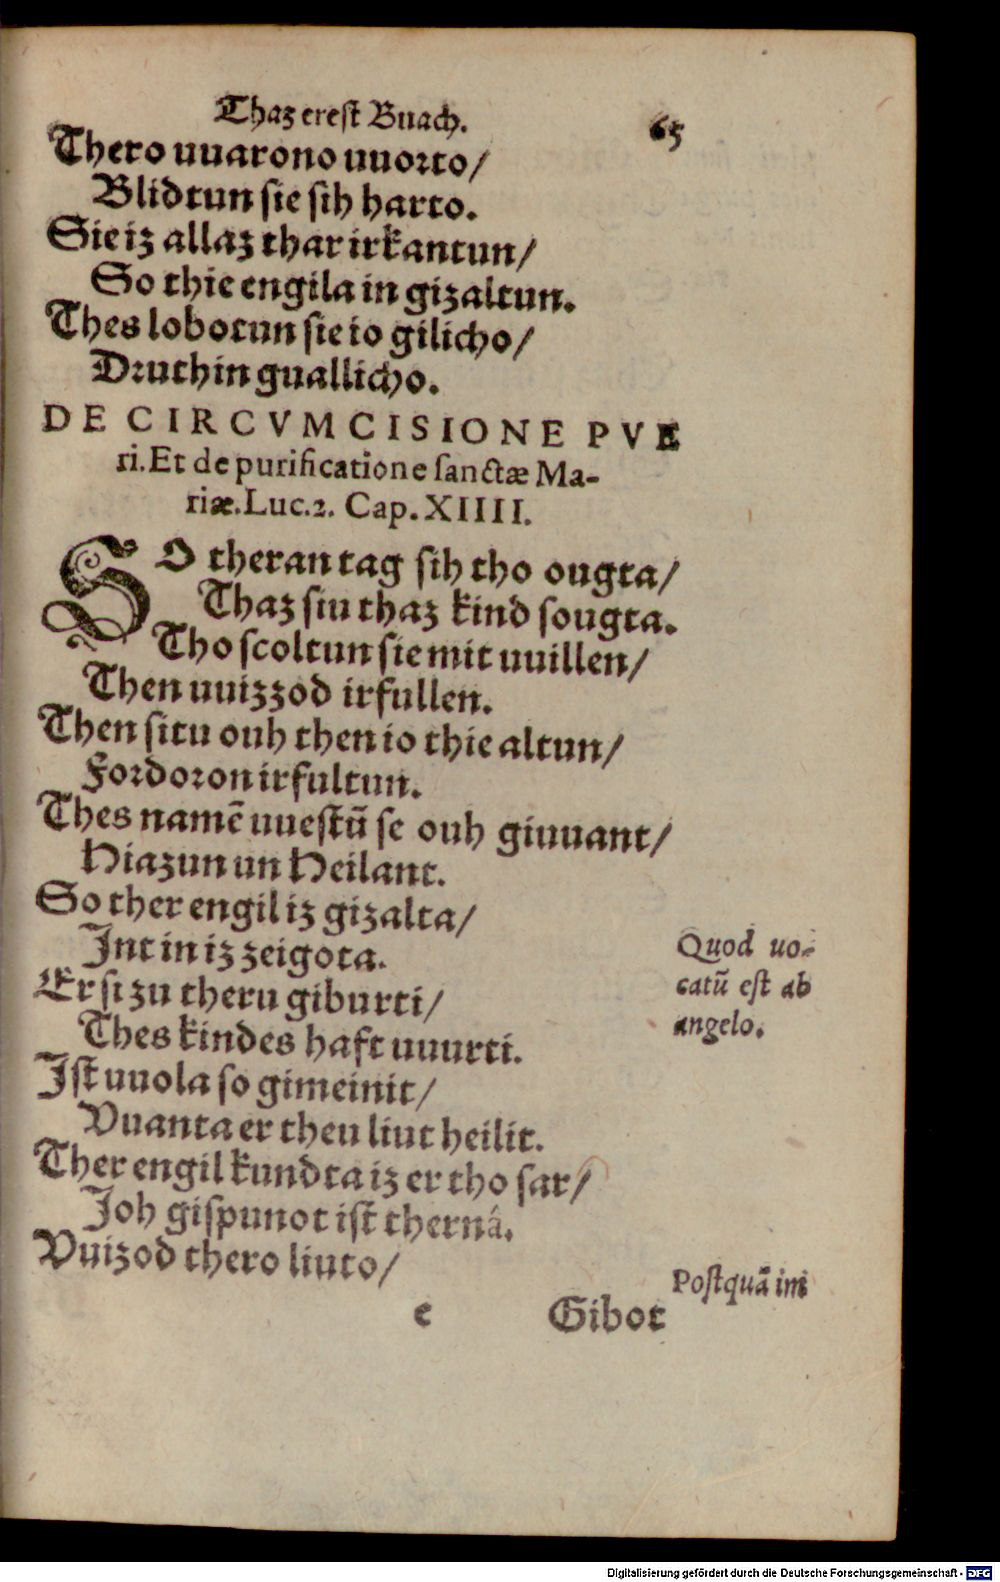 Thaz erest Buach. 65
Thero uuarono uuorto/
Blidtun sie sih harto.
Sie iz allaz thar irkantun/
So thie engila in gizaltun.
Thes lobotun sie io gilicho/
Druthin guallicho.
DE CIRCVMCISIONE PVE
ri. Et de purificatione sanctæ Ma-
riæ. Luc. 2. Cap. XIIII.
SO theran tag sih tho ougta/
Thaz siu thaz kind sougta.
Tho scoltun sie mit uuillen/
Then uuizzod irfullen.
Then situ ouh then io thie altun/
Fordoron irfultun.
Thes namē uuestū se ouh giuuant/
Hiazun un Heilant.
So ther engil iz gizalta/
Int in iz zeigota.
Er si zu theru giburti/
Thes kindes haft uuurti.
Ist uuola so gimeinit/
Vuanta er theu liut heilit.
Ther engil kundta iz er tho sar/
Joh gispunot ist ther nâ.
Vuizod thero liuto/
Quod uo-
catū est ab
angelo.
Postquā im
e Gibot
Digitalisierung gefördert durch die Deutsche Forschungsgemeinschaft - DFG